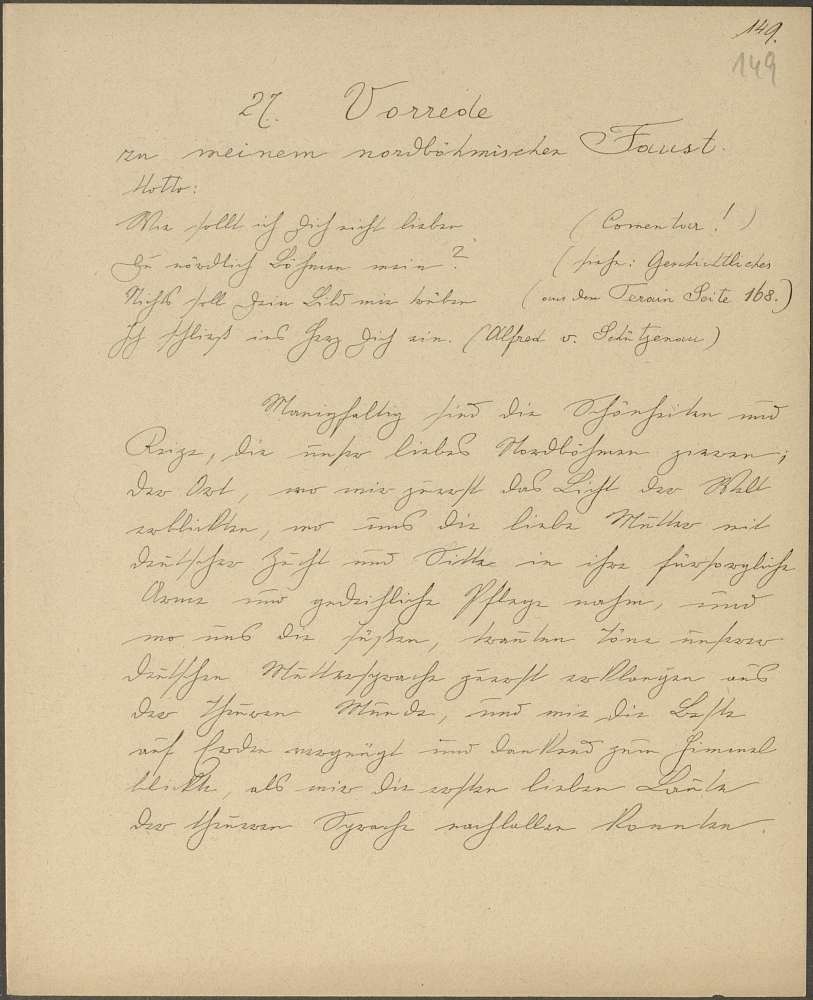 149.
149
27. Vorrede
zu meinem nordböhmischen Faust.
Motto:
Wie sollt ich Dich nicht lieben (Comentar!)
Du nördlich Böhmen mein? (siehe: Geschichtliches
Nichts soll Dein Bild mir trüben (aus dem Terain Seite 168.)
Ich schließ ins Herz Dich ein. (Alfred v. Schützenau)
Manigfaltig sind die Schönheiten und
Reize, die unser liebes Nordböhmen zieren;
der Ort, wo wir zuerst das Licht der Welt
erblickten, wo uns die liebe Mutter mit
deutscher Zucht und Sitte in ihre fürsorgliche
Arme und gedeihliche Pflege nahm, und
wo uns die süßen, trauten Töne unserer
deutschen Muttersprache zuerst erklangen aus
der theuren Munde, und wie die Beste
auf Erden vergnügt und dankend zum Himmel
blickte, als wir die ersten lieben Laute
der theueren Sprache nachlallen konnten.